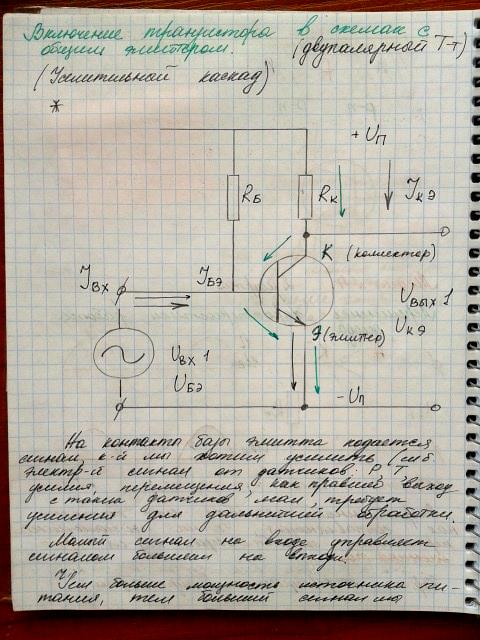 Включение транзистора в схемах с
общим эмиттером. (двуполярный Т-т)
(Усилительной каскад)
*
+ Uп
RБ
RК
JКЭ
К (коллектор)
JВХ
JБЭ
UВЫХ 1
UКЭ
Э (эмиттер)
UВХ 1
UБЭ
- Uп
На контакты базы эмитта подается
сигнал к-й мы хотим усилить (
электр-й сигнал от датчиков: P, T,
усилия, перемещения, как правило выход
с таких датчиков мал, требует
усиления для дальнейшей обработки.
Малый сигнал на входе управляет
сигналом большим на выходе.
Чем больше мощность источника пи-
тания, тем больший сигнал мы